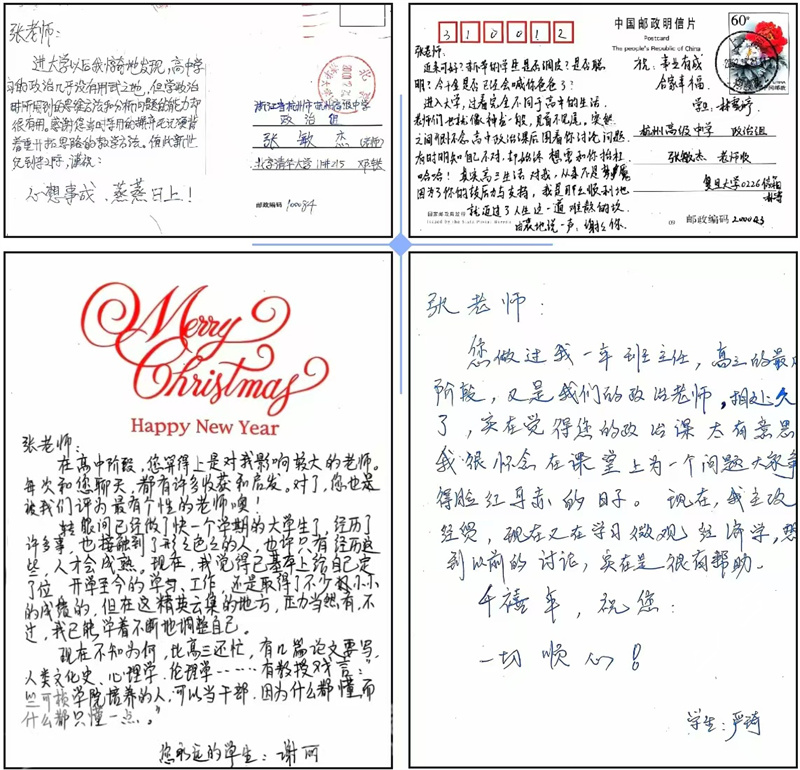 张老师：
进大学以后我惊奇地发现，高中学
的政治几乎没有用武之地，但学政治
时所用到的思维方法和分析问题的能力却
很有用。感谢您当时
着重开拓思路的教学方法。值此新世
纪到来之际，谨祝：
心想事成、蒸蒸日上！
浙江省杭州市杭州高级中学
政治组
张敏杰（老师）
北京清华大学
邮政编码 100084
310012
中国邮政明信片
Postcard
The people's Republic of China
60分
张老师：
近来可好？新年的学生是否调皮？是否聪
明？今年是否已不会喊你爸爸了？
进入大学，过着完全不同于高中的生活。
老师们也就像神龙一般，见首不见尾。突然
之间很怀念高中政治课后围着你讨论问题
有时明知自己不对，却始终想要和你抬杠
哈哈！真实高三生活对我，从来不是梦魇
因为了你的鼓励与支持，我是那么顺利地
就通过了人生这一道难熬的坎
由衷地说一声：谢谢你
祝：事业有成
合家幸福
学生：林
杭州高级中学 政治组
张敏杰 老师收
复旦大学0226信箱
国家邮政局发行
邮政编码 200043
Merry
Christmas
Happy New Year
张老师：
在高中阶段，您算得上是对我影响较大的老师。
每次和您聊天，都有许多收获和启发。对了，您也是
被我们评为最有个性的老师噢！
转眼间已经做了快一个学期的大学生了，经历了
许多事，也接触到了形形色色的人，也许只有经历这
些，人才会成熟。现在，我觉得已基本上给自己定
了位。开学至今的学习、工作，还是取得了不少极小小
的成绩的，但在这精英云集的地方，压力当然有，不
过，我已能学着不断地调整自己。
现在不知为何，比高三还忙，有几篇论文要写，
人类文化史、心理学、伦理学……有教授戏言：“
竺可桢学院培养的人，可以当干部，因为什么都懂，而
什么都只懂一点。”
您永远的学生：谢可
张老师：
您做过我一年班主任，高三的最后
阶段，又是我们的政治老师，相处久
了，实在觉得您的政治课太有意思
我很怀念在课堂上为一个问题大家争
得脸红耳赤的日子。现在，我主攻
经贸，现在又在学习微观经济学，想
到以前的讨论，实在是很有帮助。
千禧年，祝您：
一切顺心！
学生：严琦